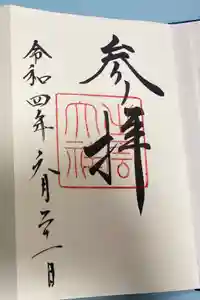 参拝
令和四年六月二十一日